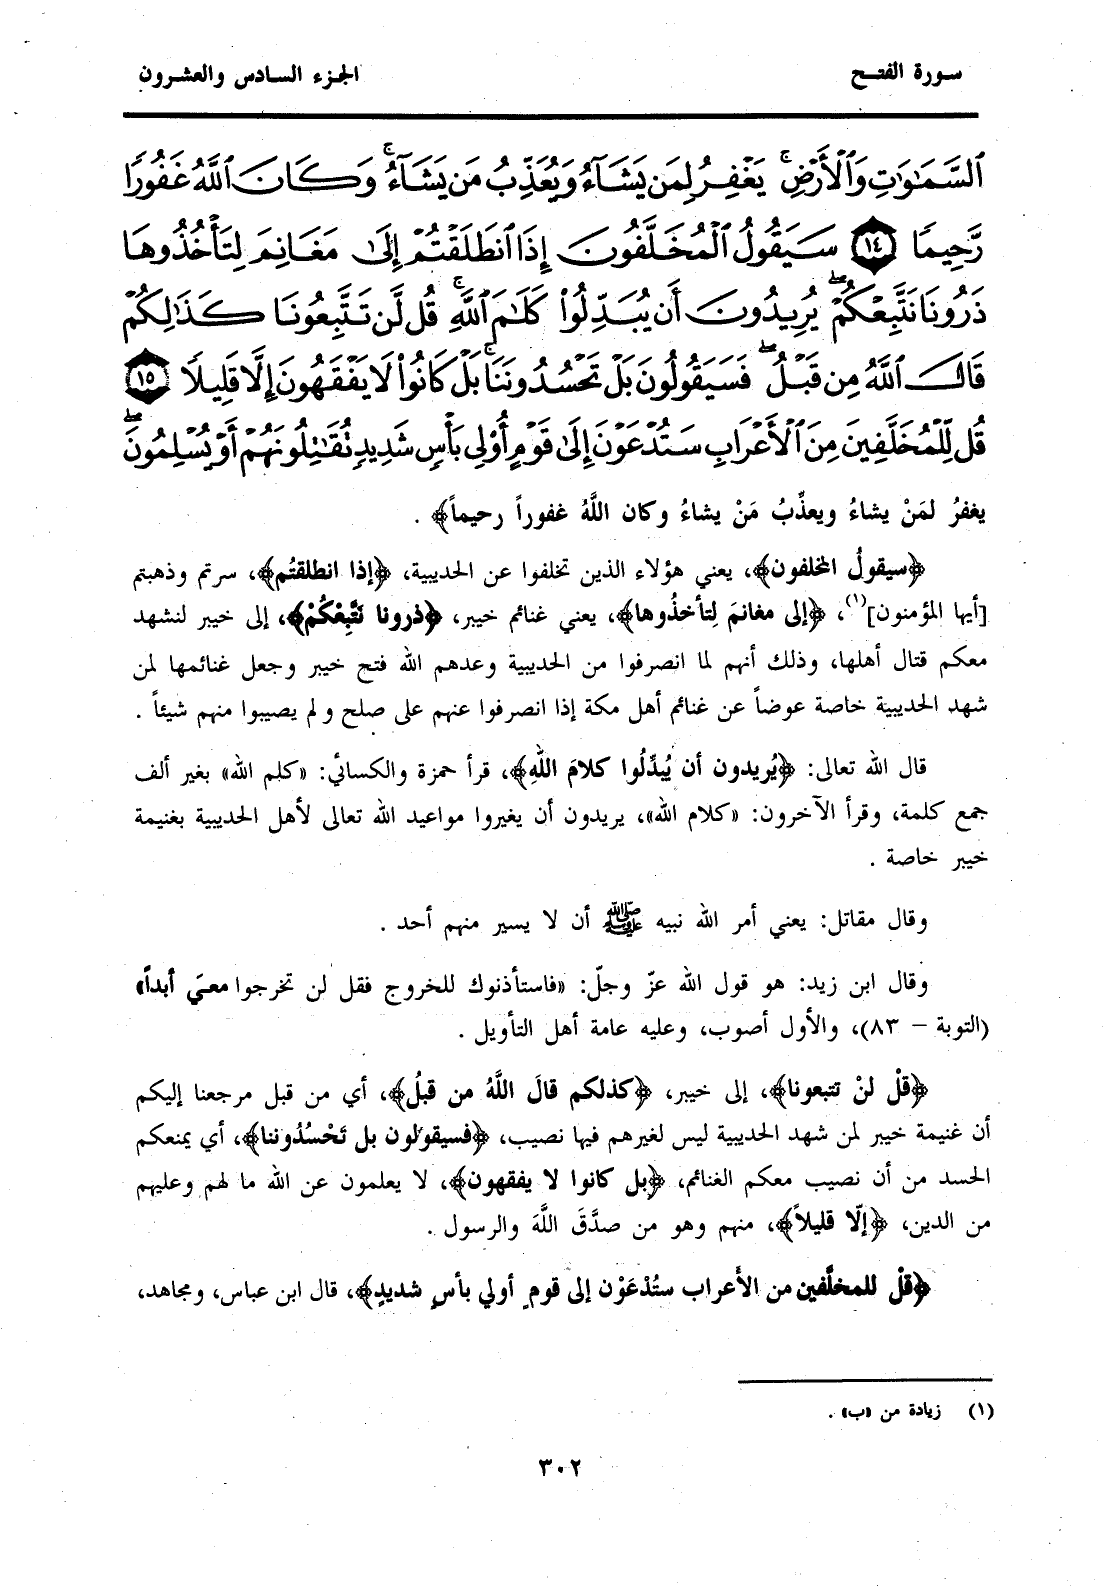 سورة الفتح
الجزء السادس والعشرون
ٱلسَّمَٰوَٰتِ وَٱلْأَرْضِۚ يَغْفِرُ لِمَن يَشَآءُ وَيُعَذِّبُ مَن يَشَآءُۚ وَكَانَ ٱللَّهُ غَفُورًا
رَّحِيمًا ١٤ سَيَقُولُ ٱلْمُخَلَّفُونَ إِذَا ٱنطَلَقْتُمْ إِلَىٰ مَغَانِمَ لِتَأْخُذُوهَا
ذَرُونَا نَتَّبِعْكُمْۖ يُرِيدُونَ أَن يُبَدِّلُوا۟ كَلَٰمَ ٱللَّهِۚ قُل لَّن تَتَّبِعُونَا كَذَٰلِكُمْ
قَالَ ٱللَّهُ مِن قَبْلُۖ فَسَيَقُولُونَ بَلْ تَحْسُدُونَنَاۚ بَلْ كَانُوا۟ لَا يَفْقَهُونَ إِلَّا قَلِيلًا ١٥
قُل لِّلْمُخَلَّفِينَ مِنَ ٱلْأَعْرَابِ سَتُدْعَوْنَ إِلَىٰ قَوْمٍ أُو۟لِى بَأْسٍ شَدِيدٍ تُقَٰتِلُونَهُمْ أَوْ يُسْلِمُونَۖ
يغفرُ لمَنْ يشاءُ ويعذِّبُ مَنْ يشاءُ وكان اللَّهُ غفوراً رحيماً﴾ .
﴿سيقولُ المخلفون﴾، يعني هؤلاء الذين تخلفوا عن الحديبية، ﴿إذا انطلقتُم﴾، سرتم وذهبتم
[أيها المؤمنون](١)، ﴿إلى مغانمَ لِتأخذُوها﴾، يعني غنائم خيبر، ﴿ذرونا نَتَّبِعْكُمْ﴾، إلى خيبر لنشهد
معكم قتال أهلها، وذلك أنهم لما انصرفوا من الحديبية وعدهم الله فتح خيبر وجعل غنائمها لمن
شهد الحديبية خاصة عوضاً عن غنائم أهل مكة إذا انصرفوا عنهم على صلح ولم يصيبوا منهم شيئاً .
قال الله تعالى: ﴿يُريدون أن يُبدِّلُوا كلامَ اللَّهِ﴾، قرأ حمزة والكسائي: «كلم الله» بغير ألف
جمع كلمة، وقرأ الآخرون: «كلام الله»، يريدون أن يغيروا مواعيد الله تعالى لأهل الحديبية بغنيمة
خيبر خاصة .
وقال مقاتل: يعني أمر الله نبيه ﷺ أن لا يسير منهم أحد .
وقال ابن زيد: هو قول الله عزّ وجلّ: «فاستأذنوك للخروج فقل لن تخرجوا معيَ أبداً»
(التوبة – ٨٣)، والأول أصوب، وعليه عامة أهل التأويل .
﴿قلْ لنْ تتبعونا﴾، إلى خيبر، ﴿كذلكم قالَ اللَّهُ من قبلُ﴾، أي من قبل مرجعنا إليكم
أن غنيمة خيبر لمن شهد الحديبية ليس لغيرهم فيها نصيب، ﴿فسيقولون بل تَحْسُدُوننا﴾، أي يمنعكم
الحسد من أن نصيب معكم الغنائم، ﴿بل كانوا لا يفقهون﴾، لا يعلمون عن الله ما لهم وعليهم
من الدين، ﴿إلّا قليلاً﴾، منهم وهو من صدَّقَ اللَّهَ والرسول .
﴿قلْ للمخلَّفين من الأعراب ستُدْعَوْن إلى قومٍ أولي بأسٍ شديدٍ﴾، قال ابن عباس، ومجاهد،
(١) زيادة من «ب» .
٣٠٢